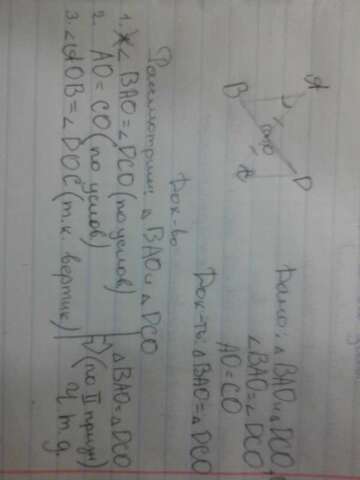 Дано: △BAO и △DCO,
∠BAO=∠DCO
AO=CO
Док-ть: △BAO=△DCO
A
B
O
D
Док-во
Рассмотрим: △BAO и △DCO
1. ∠BAO=∠DCO (по услов)
2. AO=CO (по услов)
3. ∠AOB=∠DOC (т.к. вертик)
⇒ △BAO=△DCO
(по II призн)
ч.т.д.